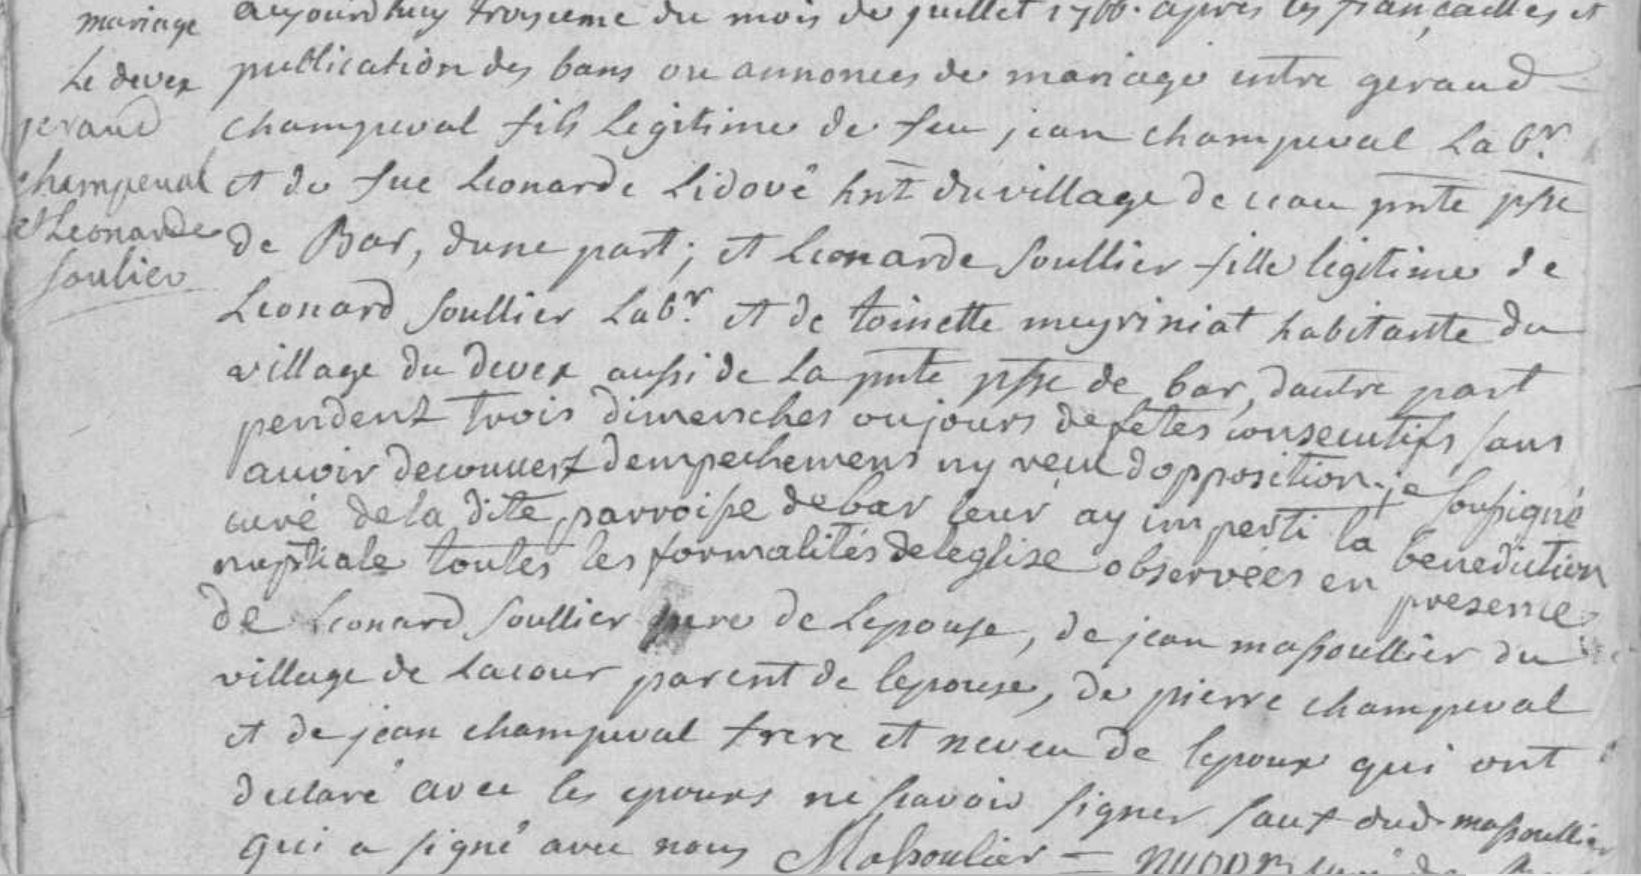 mariage
Le devex
geraud
champeval
et Leonarde
soulier
aujourdhuy troisieme du mois de juillet 1766. apres les fiançailles et
publication des bans ou annonces de mariage entre geraud
champeval fils legitime de feu jean champeval Labr.
et de fue Leonarde Lidové hnt du village de ceau pnte psse
de Bar, dune part; et Leonarde soullier fille legitime de
Leonard soullier Labr. et de toinette meyriniat habitante du
village du devex aussi de la pnte psse de bar, dautre part
pendent trois dimensches ou jours de fetes consecutifs sans
avoir decouvert dempechemens ny veu dopposition. je soussigné
curé de la dite parroisse de bar leur ay imparti la benediction
nuptiale toutes les formalités de leglise observées en presence
de Leonard soullier pere de Lepouse, de jean massoullier du
village de Lacour parent de lepouse, de pierre champeval
et de jean champeval frere et neveu de lepoux qui ont
declaré avec les epoux ne scavoir signer sauf dud. massoullier
qui a signé avec nous Massoulier = curé de